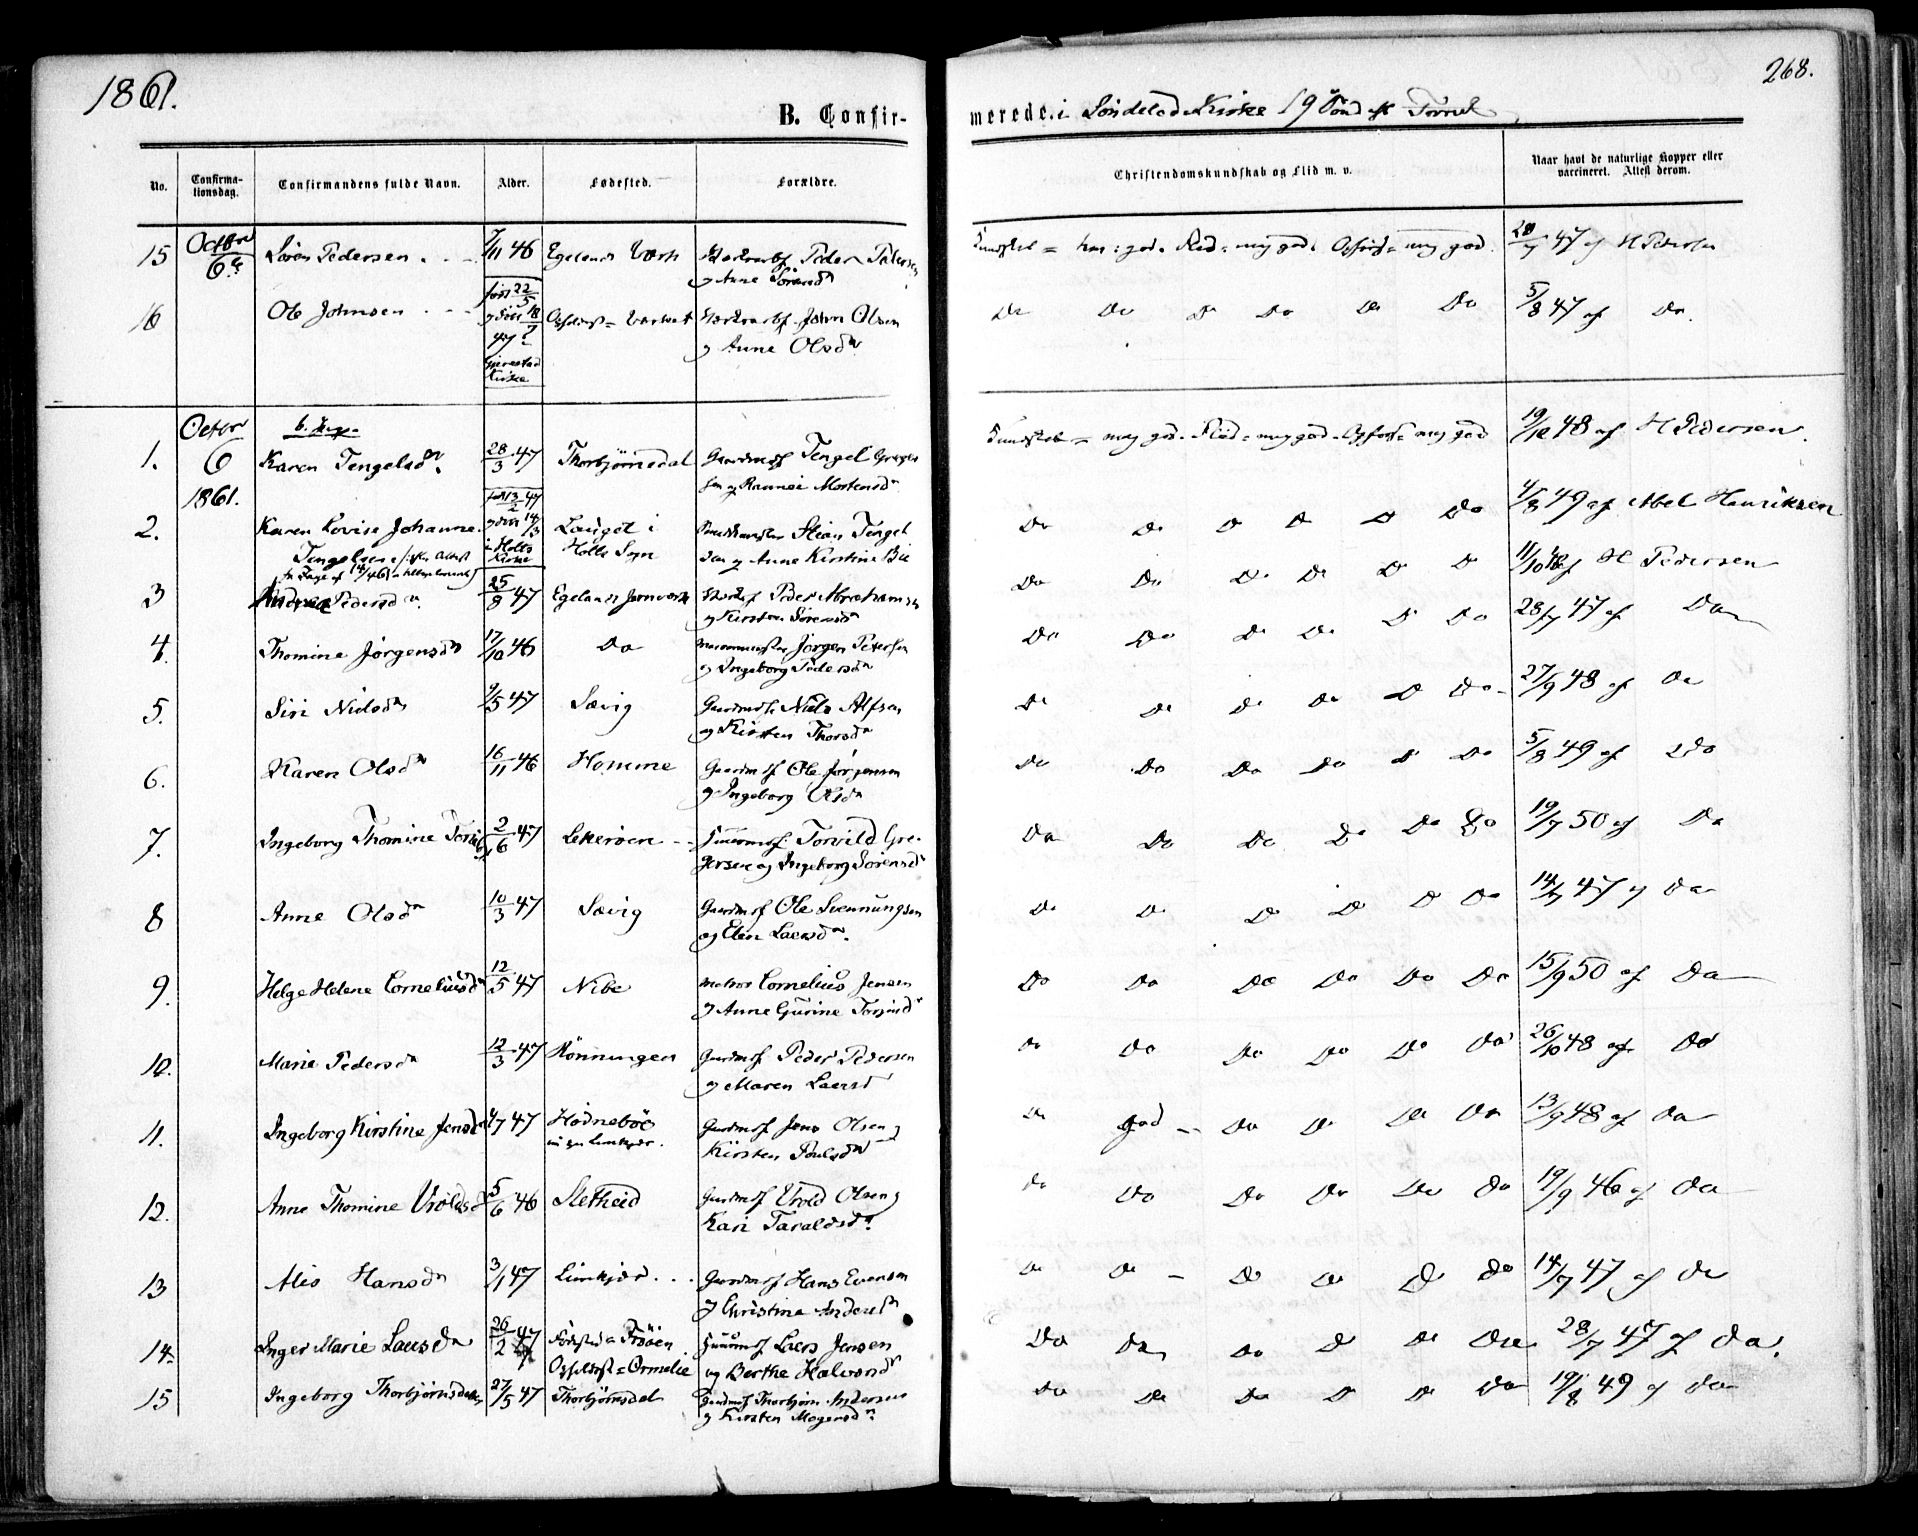 1861.
268.
B. Confir-
merede. i Söndeled Kirke 19 Sönd. af
No.
Confirma-
tionsdag.
Confirmandens fulde Navn.
Alder.
Fødested.
Forældre.
Christendomskundskab og Flid m. v.
Naar havt de naturlige Kopper eller
vaccineret. Attest derom.
15 Octbr 6te Sören Pedersen 7/11 46 Egelands Værk Peder Pedersen
og Anne Sörensdn
20/7 47 af H Pedersen
16 Ole Johnsen født 22/5 John Olsen
og Anne Olsdn
Gjerestad
Kirke
Do Do Do Do Do Do 5/8 47 af Do.
Octbr
6
1861.
b. Piger
1. Karen Tengelsdn. 28/3 47 Thorbjörnsdal Gaardmdsf Tengel Greger
sen og Rannei Mortensdn
meg god. Flid = meg god. Opførsel = meg god 19/10 48 af H Pedersen.
2. Karen Lovise Johanne 13/2 47 Lauget i Stian Tengel
Tengelsen i Holts Kirke Holts Sogn sen og Anne Kirstine Bie
Do Do Do Do Do Do 4/8 49 af Abel Henriksen
3 Andrea Pedersdn. 25/8 47 Egelands Jernværk Peder Abrahamsen
og Kirsten Sörensdn
Do Do Do Do Do Do 11/10 48 af H Pedersen
4. Thomine Jörgensdn 17/10 46 Do Jörgen Petersen
og Ingeborg Pedersdn
Do Do Do Do Do Do 28/7 47 af Do
5. Siri Nielsdn 9/5 47 Sævig Gaardmdsf. Niels Alfsen
og Kirsten Thorsdn
Do Do Do Do Do Do 27/9 48 af Do
6. Karen Olsdn 16/11 46 Homme Gaardmdsf Ole Jörgensen
og Ingeborg Olsdn
Do Do Do Do Do Do 5/8 49 af Do
7. Ingeborg Thomine 2/6 47 Lekeröen Huusmdsf. Torvild Gre-
gersen og Ingeborg Sörensdn
Do Do Do Do Do Do 19/7 50 af Do
8 Anne Olsdn 10/3 47 Sævig Gaardmdsf Ole Svennungsen
og Elen Laersdn.
Do Do Do Do Do Do 14/7 47 af Do
9. Helge Helene Corneliusdn 12/5 47 Nibe Matros Cornelius Jensen
og Anne Gurine
Do Do Do Do Do Do 15/9 50 af Do
10. Marie Pedersdn 12/3 47 Rönningen Gaardmdsf Peder Pedersen
og Maren Laersd
Do Do Do Do Do Do 26/10 48 af Do
11. Ingeborg Kirstine Jensdn 4/7 47 Hødnebøe Gaardmdsf Jens Olsen og
Kirsten Poulsdn
Do god Do Do Do Do 13/9 48 af Do
12. Anne Thomine Vroldsd 5/6 46 Sletheid Gaardmdsf Vrold Olsen og
Kari Taraldsdn.
Do Do Do Do Do Do 19/9 46 af Do
13 Alis Hansdn 3/1 47 Limkjær Gaardmdsf Hans Evensen
og Christine Andersdn
Do Do Do Do Do Do 14/7 47 af Do
14. Inger Marie Laersdn 26/2 47 Födested = Frøen Huusmdsf Laers Jensen
Opholdst = Ormelie og Berthe Halvorsdn
Do Do Do Do Do Do 28/7 47 af Do.
15 Ingeborg Thorbjörnsdatter 27/5 47 Thorbjörnsdal Gaardmdsf Thorbjörn Andersen
og Kirsten Mogensdn.
Do Do Do Do Do Do 19/8 49 af Do